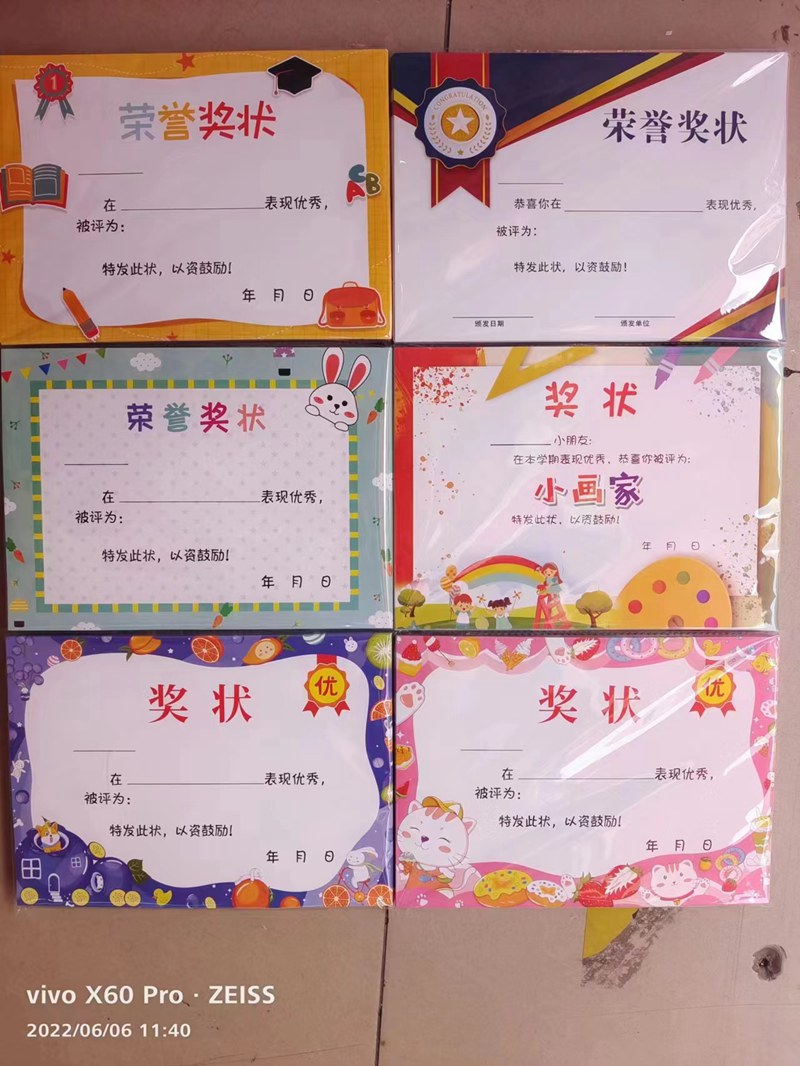 1
荣誉奖状
A
B
C
在表现优秀，
被评为：
特发此状，以资鼓励！
年 月 日
CONGRATULATION
荣誉奖状
恭喜你在表现优秀，
被评为：
特发此状，以资鼓励！
颁发日期 颁发单位
荣誉奖状
在表现优秀，
被评为：
特发此状，以资鼓励！
年 月 日
奖 状
小朋友：
在本学期表现优秀，恭喜你被评为：
小画家
特发此状，以资鼓励！
年 月 日
奖 状
优
在表现优秀，
被评为：
特发此状，以资鼓励！
年 月 日
奖 状
优
在表现优秀，
被评为：
特发此状，以资鼓励！
年 月 日
vivo X60 Pro · ZEISS
2022/06/06 11:40